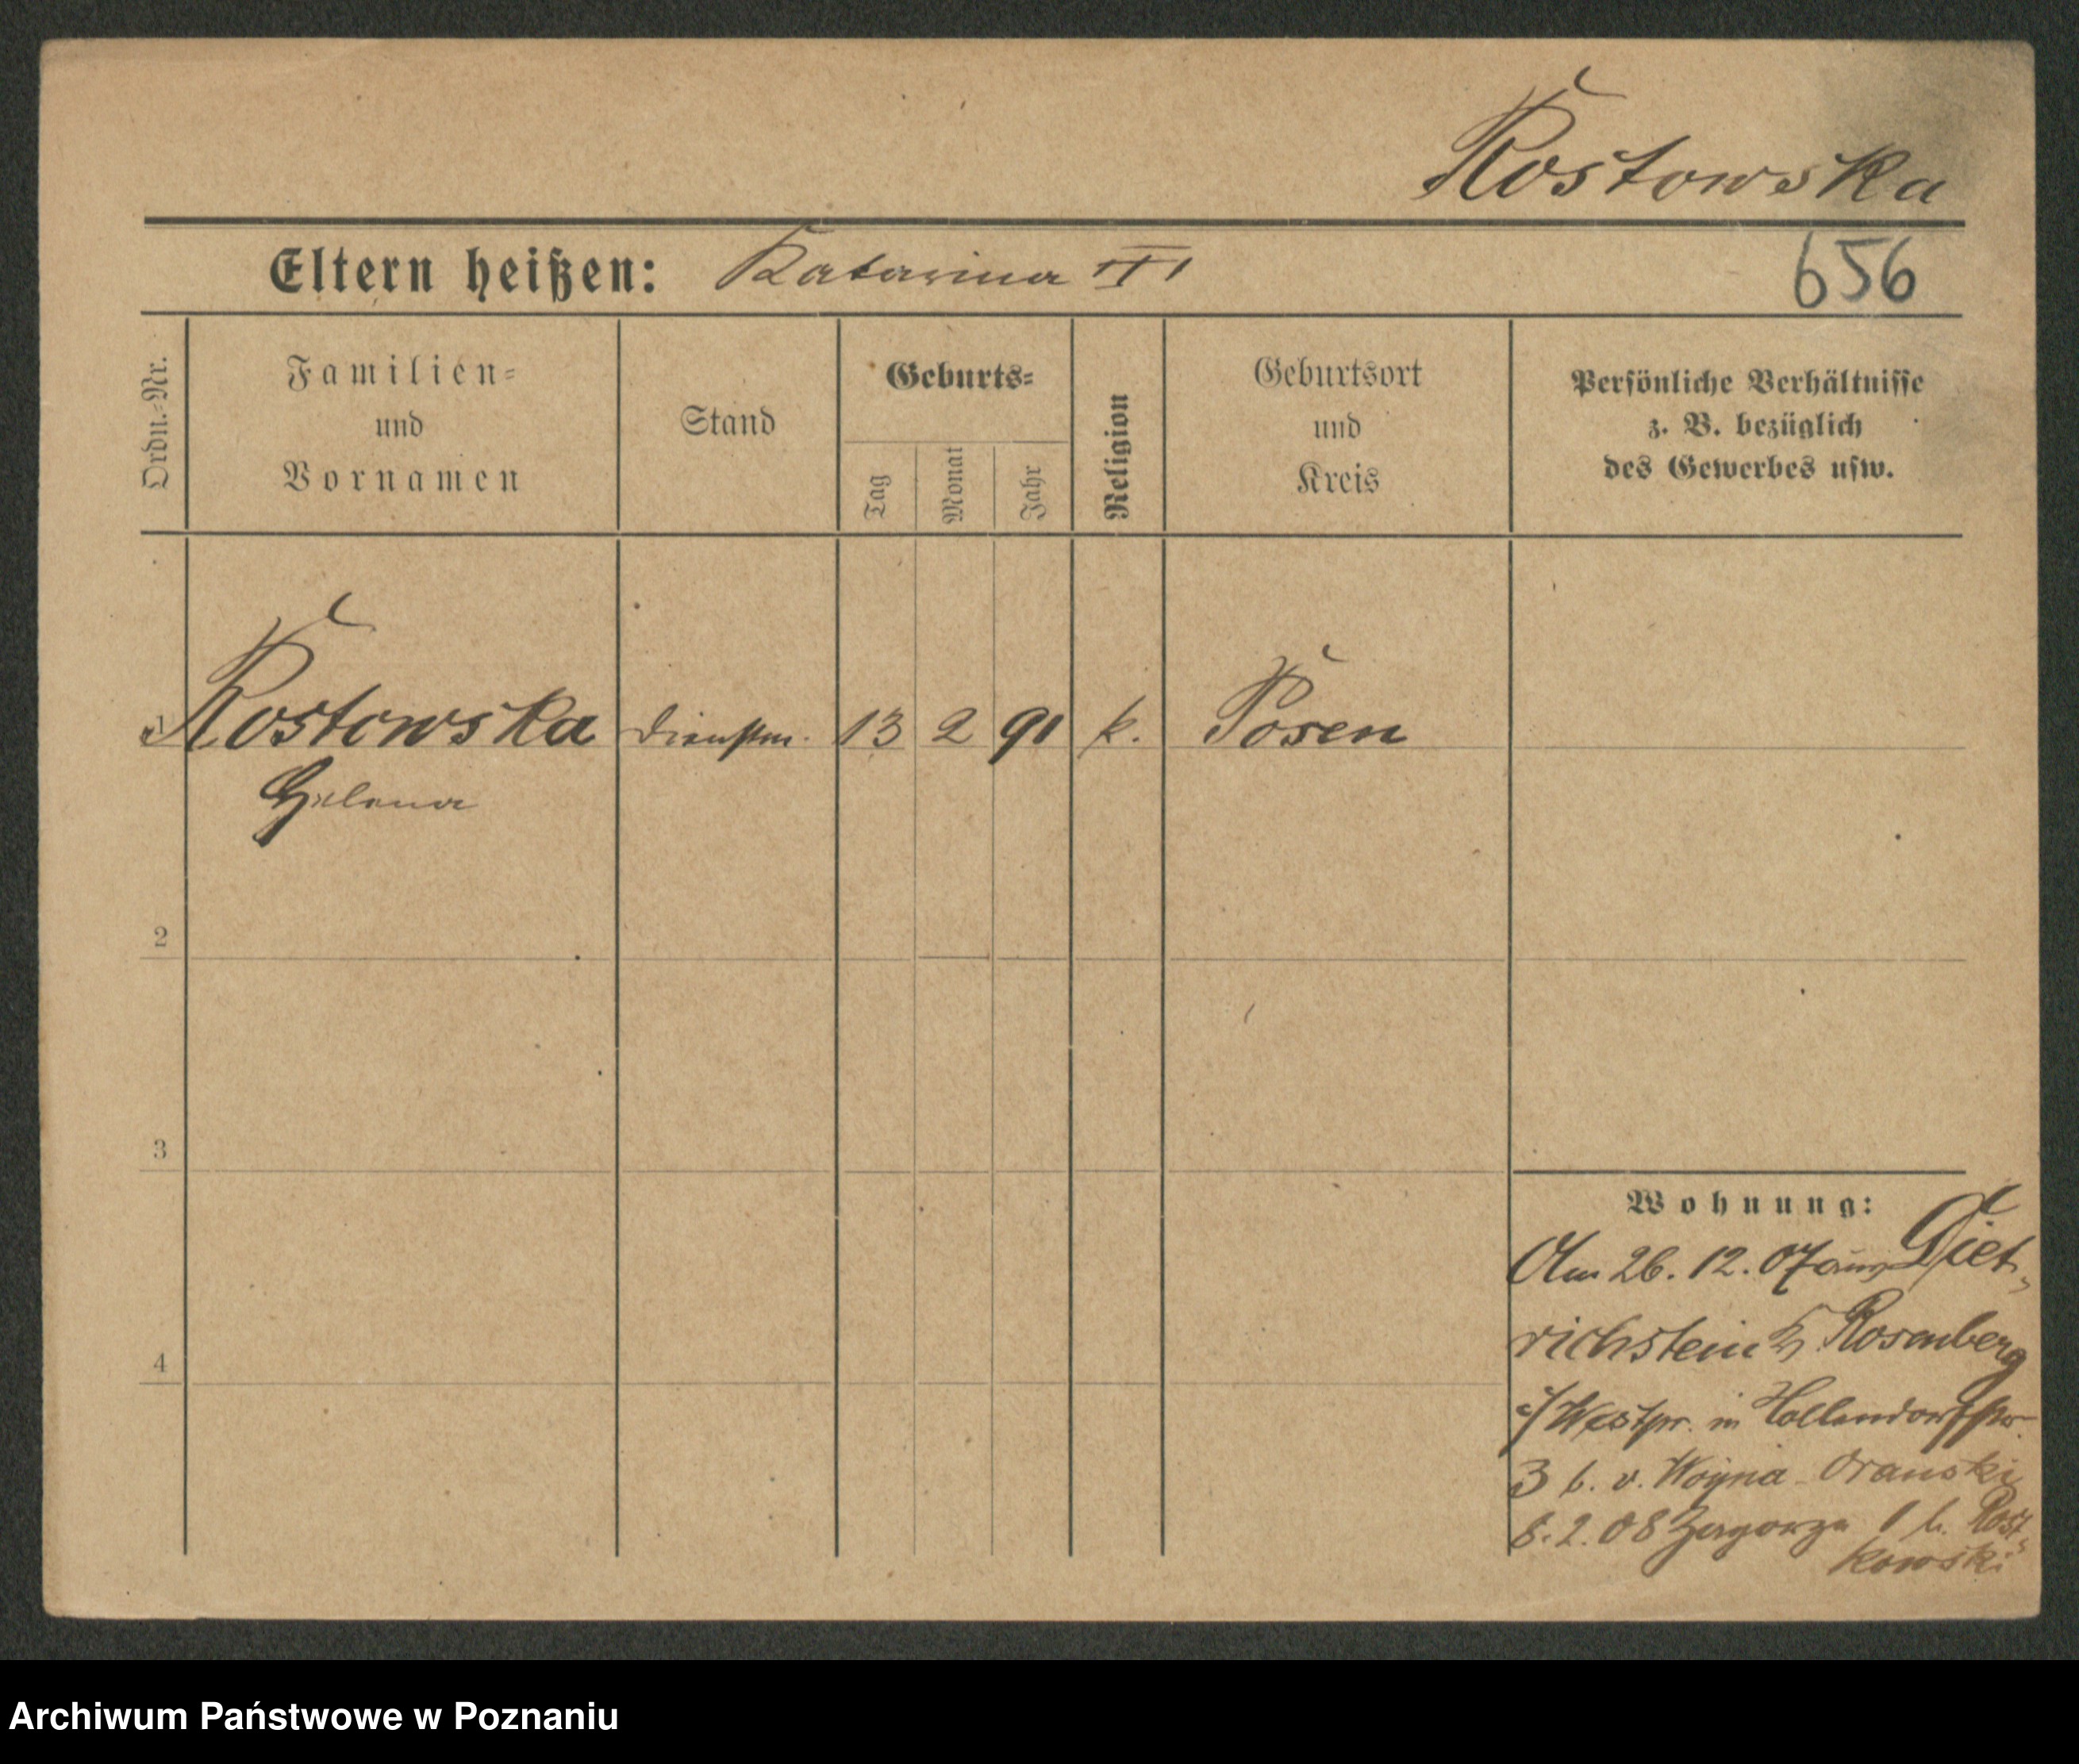 Rostowska
Eltern heißen: Katarina III
656
Ordn.-Nr.
Familien-
und
Vornamen
Stand
Geburts-
Tag
Monat
Jahr
Religion
Geburtsort
und
Kreis
Persönliche Verhältnisse
z. B. bezüglich
des Gewerbes usw.
1 Rostowska Dienstm. 13 2 91 k. Posen
Helena
2
3
4
Wohnung:
Am 26.12.07 aus Diet-
richstein Rosenberg
Westpr. in Hollendorfstr.
3 b. v. Woyna-Oranski
8.2.08 Zagorze 1 b. Rost-
kowski
Archiwum Państwowe w Poznaniu